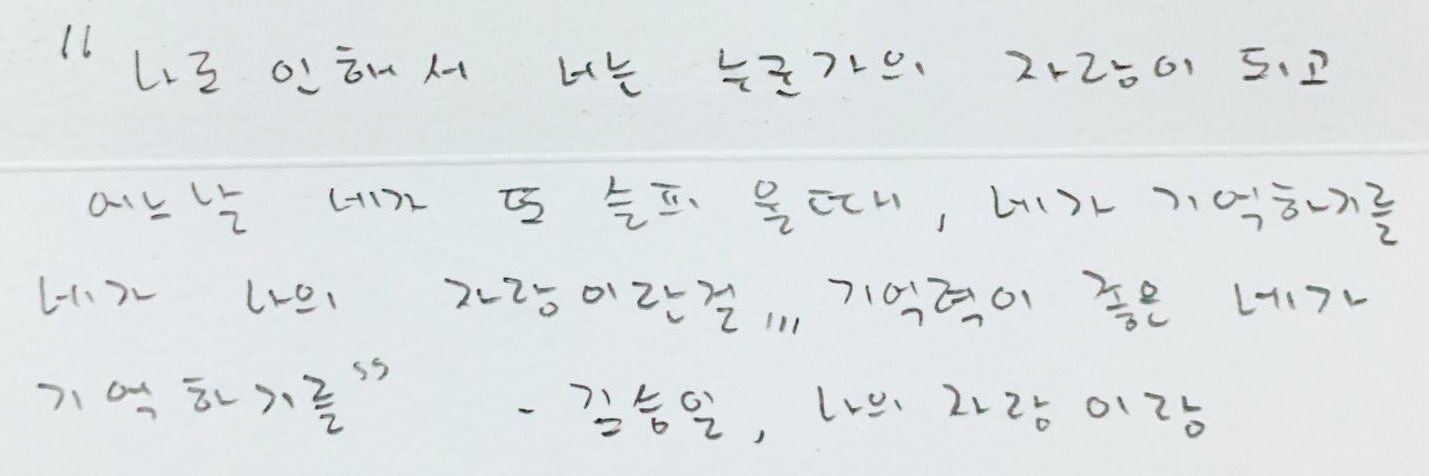 "나로 인해서 너는 누군가의 자랑이 되고
어느날 네가 또 슬피 울때, 네가 기억하기를
네가 나의 자랑이란걸,,, 기억력이 좋은 네가
기억하기를"  - 김승일, 나의 자랑 이랑